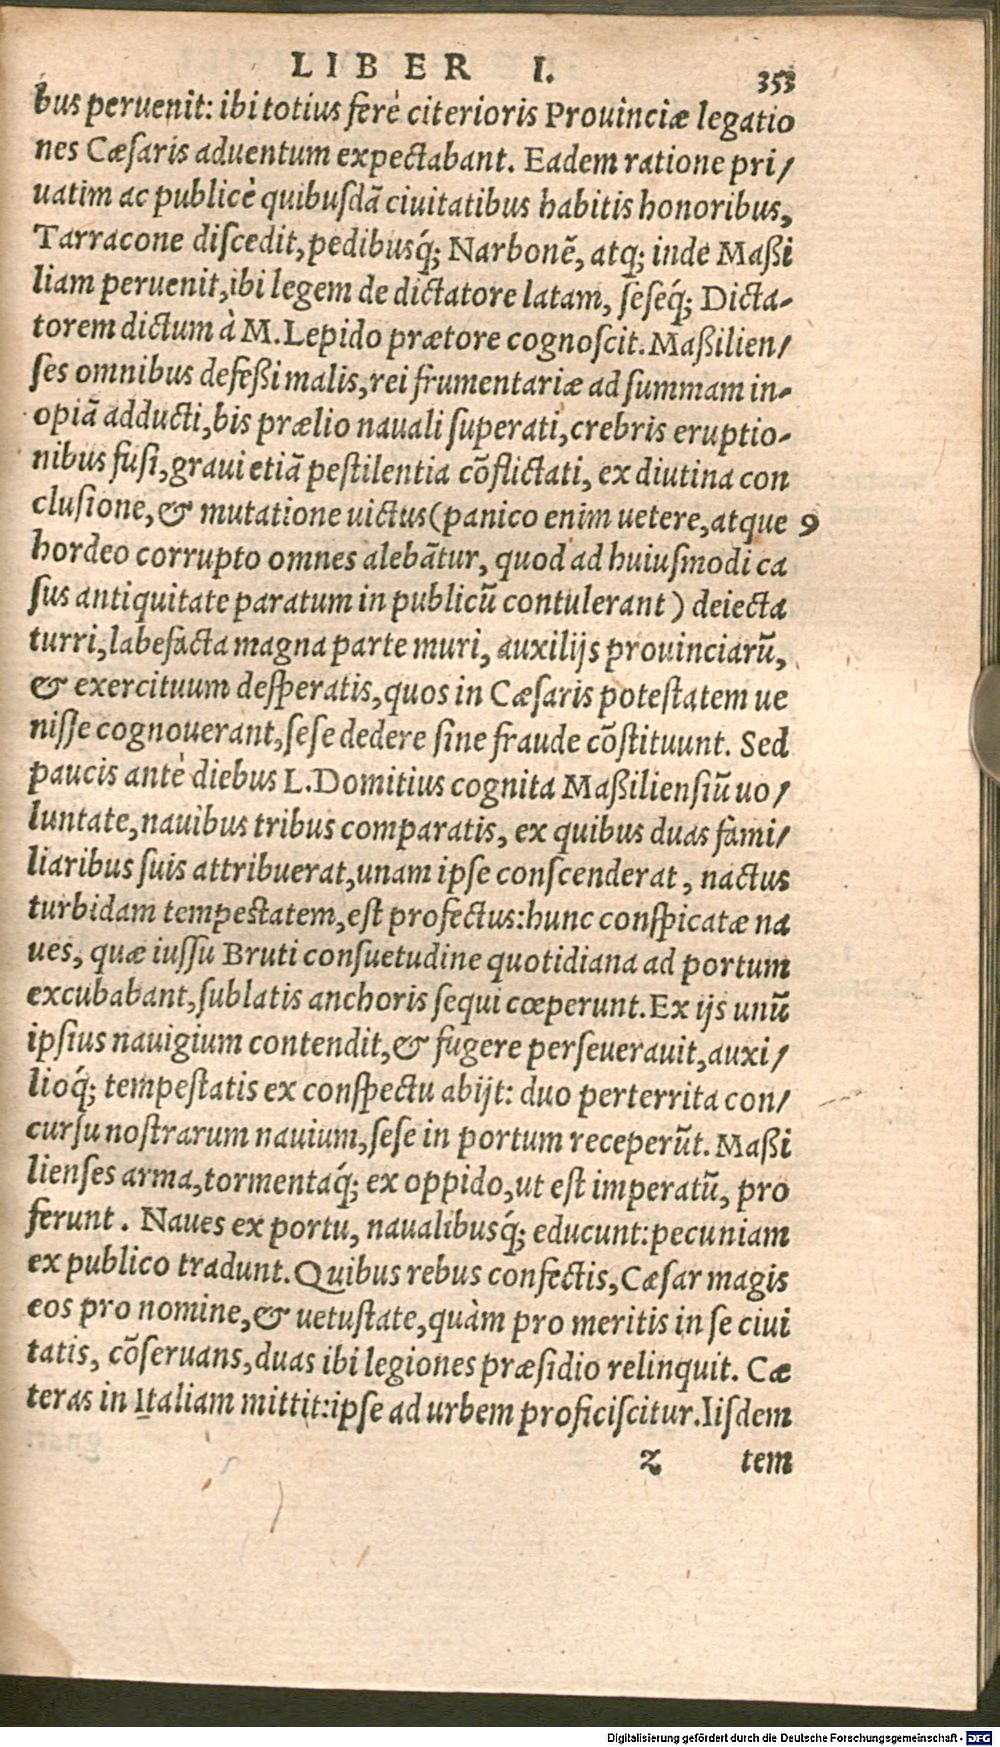 LIBER I. 353
bus peruenit: ibi totius ferè citerioris Prouinciæ legatio
nes Cæſaris aduentum expectabant. Eadem ratione pri/
uatim ac publicè quibuſdã ciuitatibus habitis honoribus,
Tarracone diſcedit, pedibusq́; Narbonẽ, atq; inde Maßi
liam peruenit, ibi legem de dictatore latam, ſeſeq́; Dicta-
torem dictum à M. Lepido prætore cognoſcit. Maßilien/
ſes omnibus defeßi malis, rei frumentariæ ad ſummam in-
opiã adducti, bis prælio nauali ſuperati, crebris eruptio-
nibus fuſi, graui etiã peſtilentia cõflictati, ex diutina con
cluſione, & mutatione uictus (panico enim uetere, atque 9
hordeo corrupto omnes alebãtur, quod ad huiuſmodi ca
ſus antiquitate paratum in publicũ contulerant) deiecta
turri, labefacta magna parte muri, auxilijs prouinciarũ,
& exercituum deſperatis, quos in Cæſaris poteſtatem ue
niſſe cognouerant, ſeſe dedere ſine fraude cõſtituunt. Sed
paucis antè diebus L. Domitius cognita Maßilienſiũ uo/
luntate, nauibus tribus comparatis, ex quibus duas fami/
liaribus ſuis attribuerat, unam ipſe conſcenderat, nactus
turbidam tempeſtatem, eſt profectus: hunc conſpicatæ na
ues, quæ iuſſu Bruti conſuetudine quotidiana ad portum
excubabant, ſublatis anchoris ſequi cœperunt. Ex ijs unũ
ipſius nauigium contendit, & fugere perſeuerauit, auxi/
lioq́; tempeſtatis ex conſpectu abijt: duo perterrita con/
curſu noſtrarum nauium, ſeſe in portum receperũt. Maßi
lienſes arma, tormentaq́; ex oppido, ut eſt imperatũ, pro
ferunt. Naues ex portu, naualibusq́; educunt: pecuniam
ex publico tradunt. Quibus rebus confectis, Cæſar magis
eos pro nomine, & uetuſtate, quàm pro meritis in ſe ciui
tatis, cõſeruans, duas ibi legiones præſidio relinquit. Cæ
teras in Italiam mittit: ipſe ad urbem proficiſcitur. Iiſdem
z tem
Digitalisierung gefördert durch die Deutsche Forschungsgemeinschaft - DFG